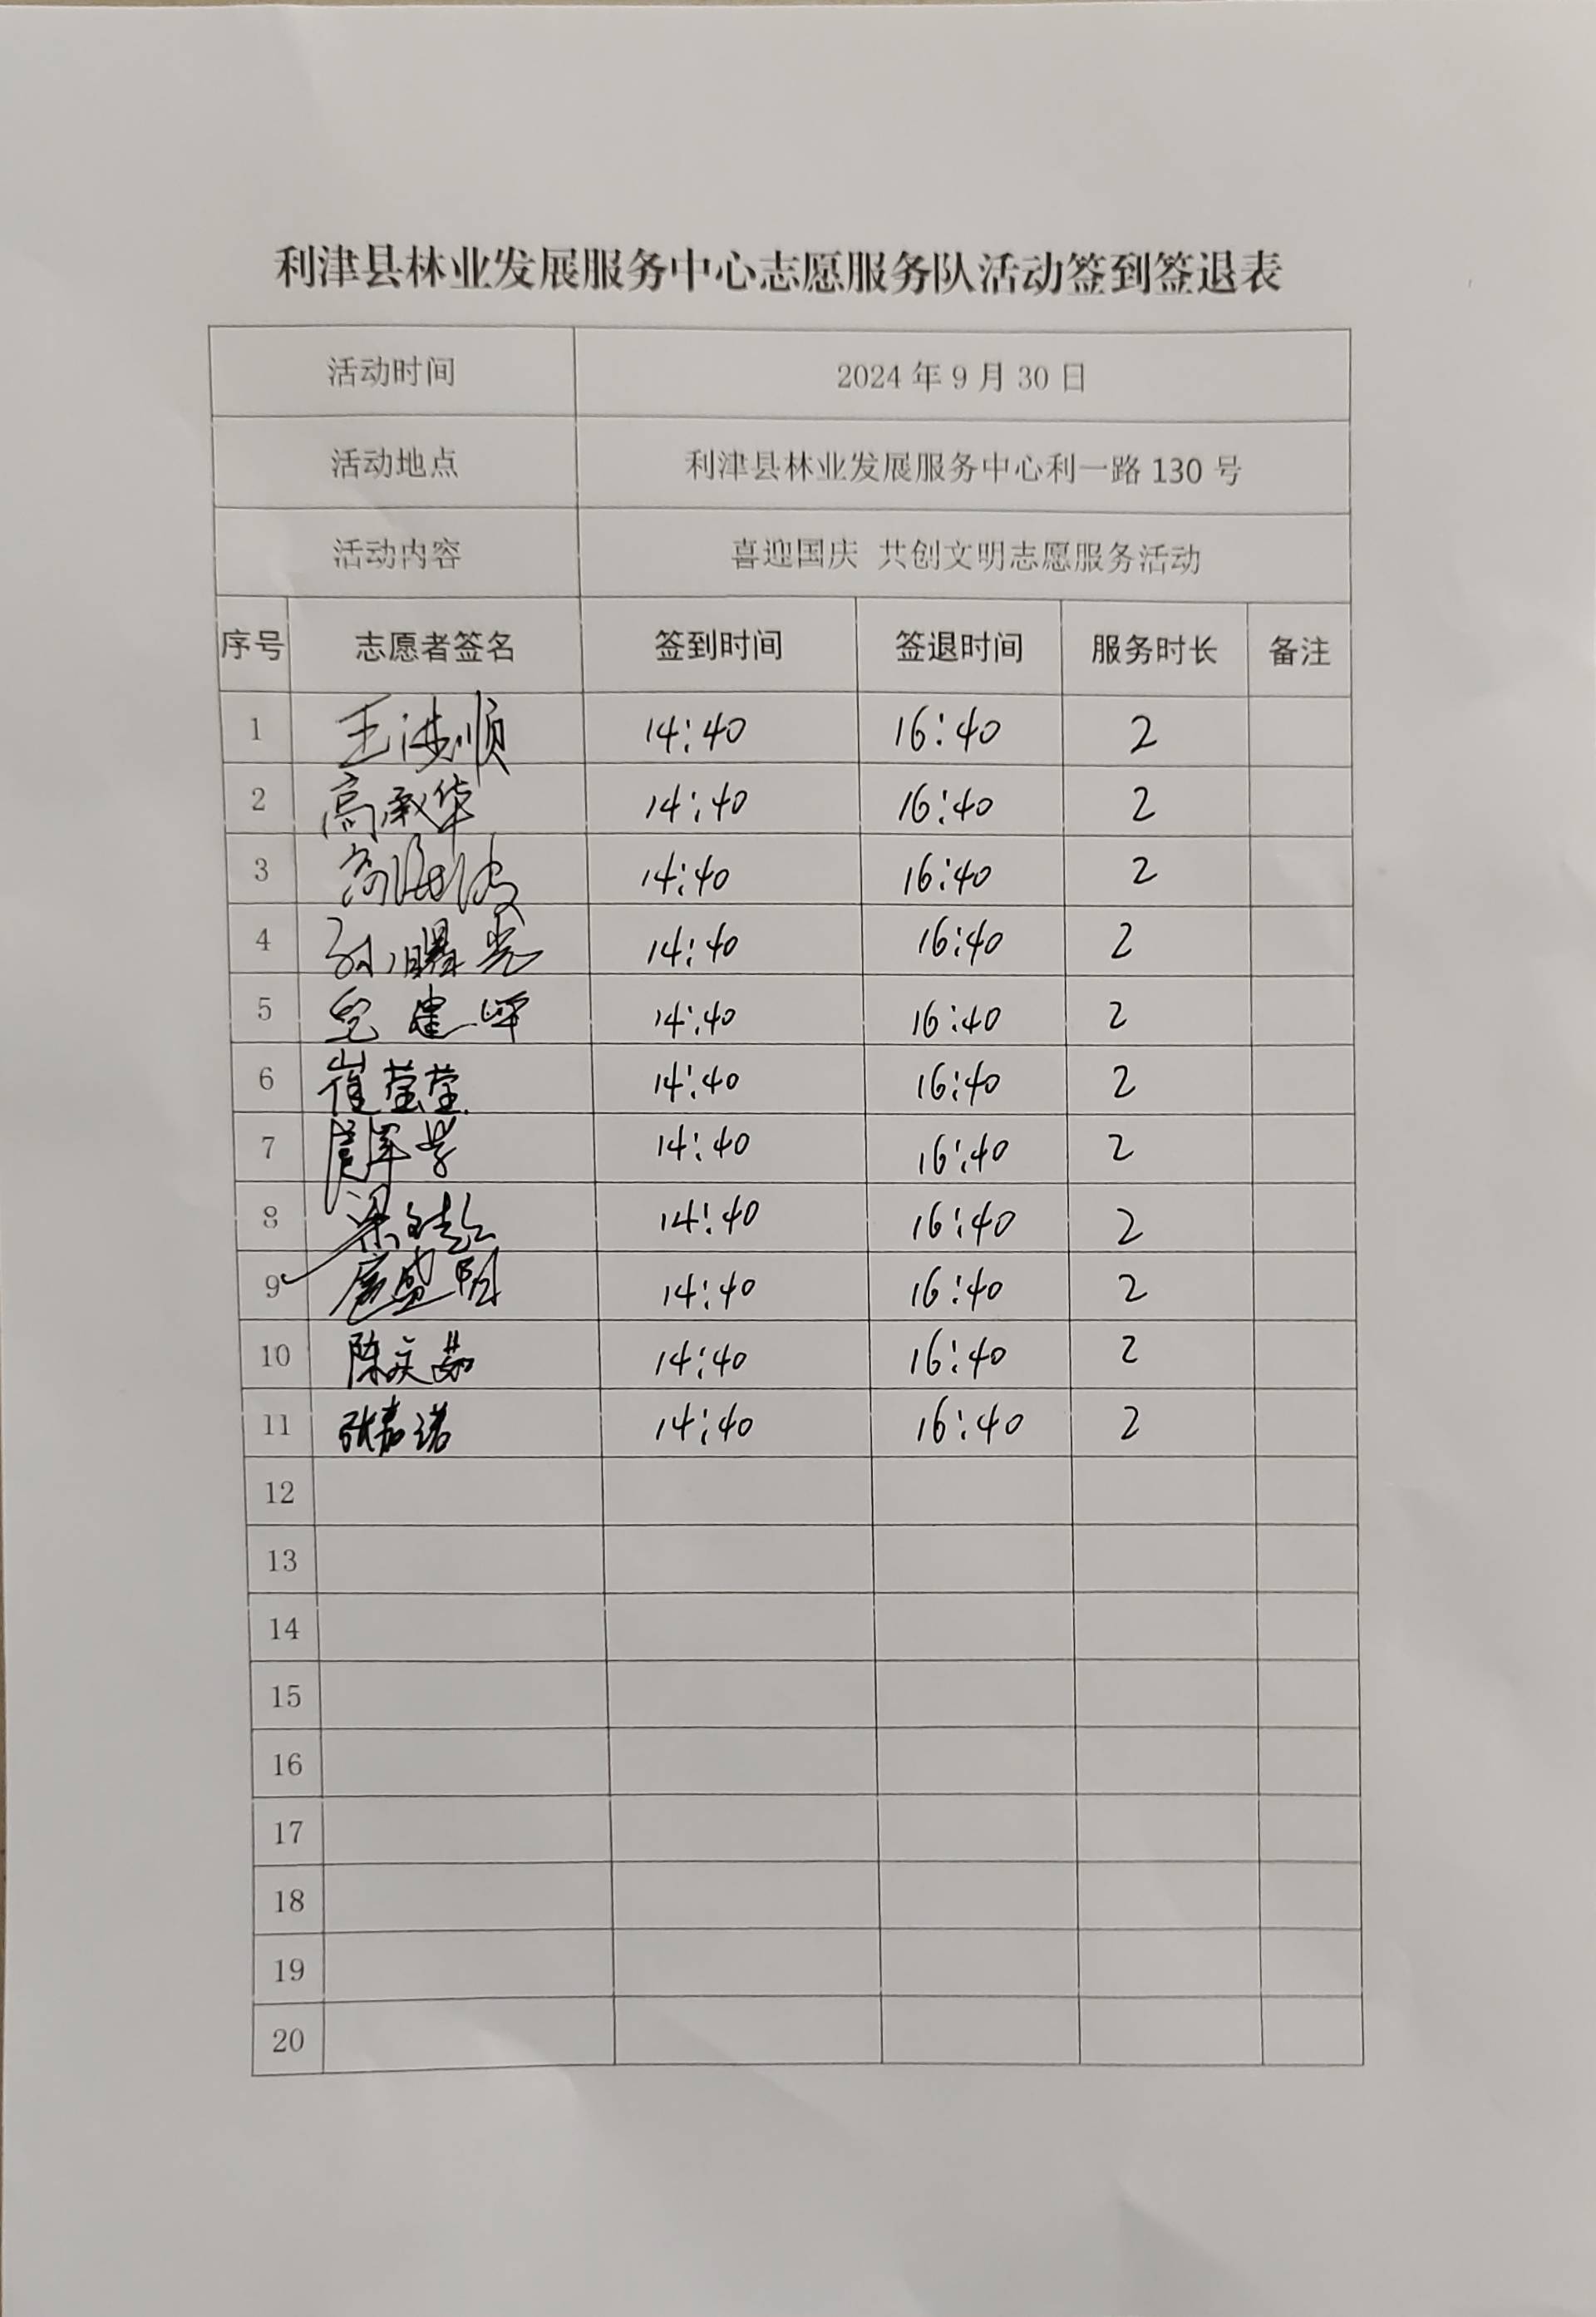 利津县林业发展服务中心志愿服务队活动签到签退表
活动时间 2024年9月30日
活动地点 利津县林业发展服务中心利一路130号
活动内容 喜迎国庆 共创文明志愿服务活动
序号 志愿者签名 签到时间 签退时间 服务时长 备注
1 王洪顺 14:40 16:40 2
2 高承华 14:40 16:40 2
3 14:40 16:40 2
4 孙曙光 14:40 16:40 2
5 14:40 16:40 2
6 崔莹莹 14:40 16:40 2
7 14:40 16:40 2
8 14:40 16:40 2
9 14:40 16:40 2
10 陈文茹 14:40 16:40 2
11 张嘉诺 14:40 16:40 2
12
13
14
15
16
17
18
19
20